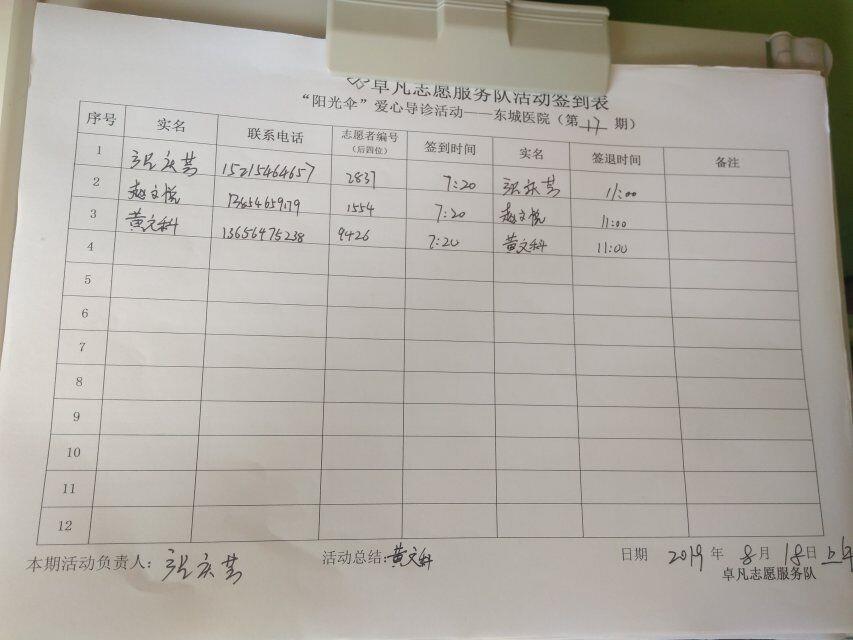 卓凡志愿服务队活动签到表
“阳光伞”爱心导诊活动——东城医院（第 17 期）
序号 实名 联系电话 志愿者编号（后四位） 签到时间 实名 签退时间 备注
1 张庆芸 15215464657 2837 7:20 张庆芸 11:00
2 赵文悦 1554 7:20 赵文悦 11:00
3 黄文科 13656475238 9426 7:20 黄文科 11:00
4
5
6
7
8
9
10
11
12
本期活动负责人：张庆芸 活动总结：黄文科 日期 2019 年 8 月 18 日 上午
卓凡志愿服务队